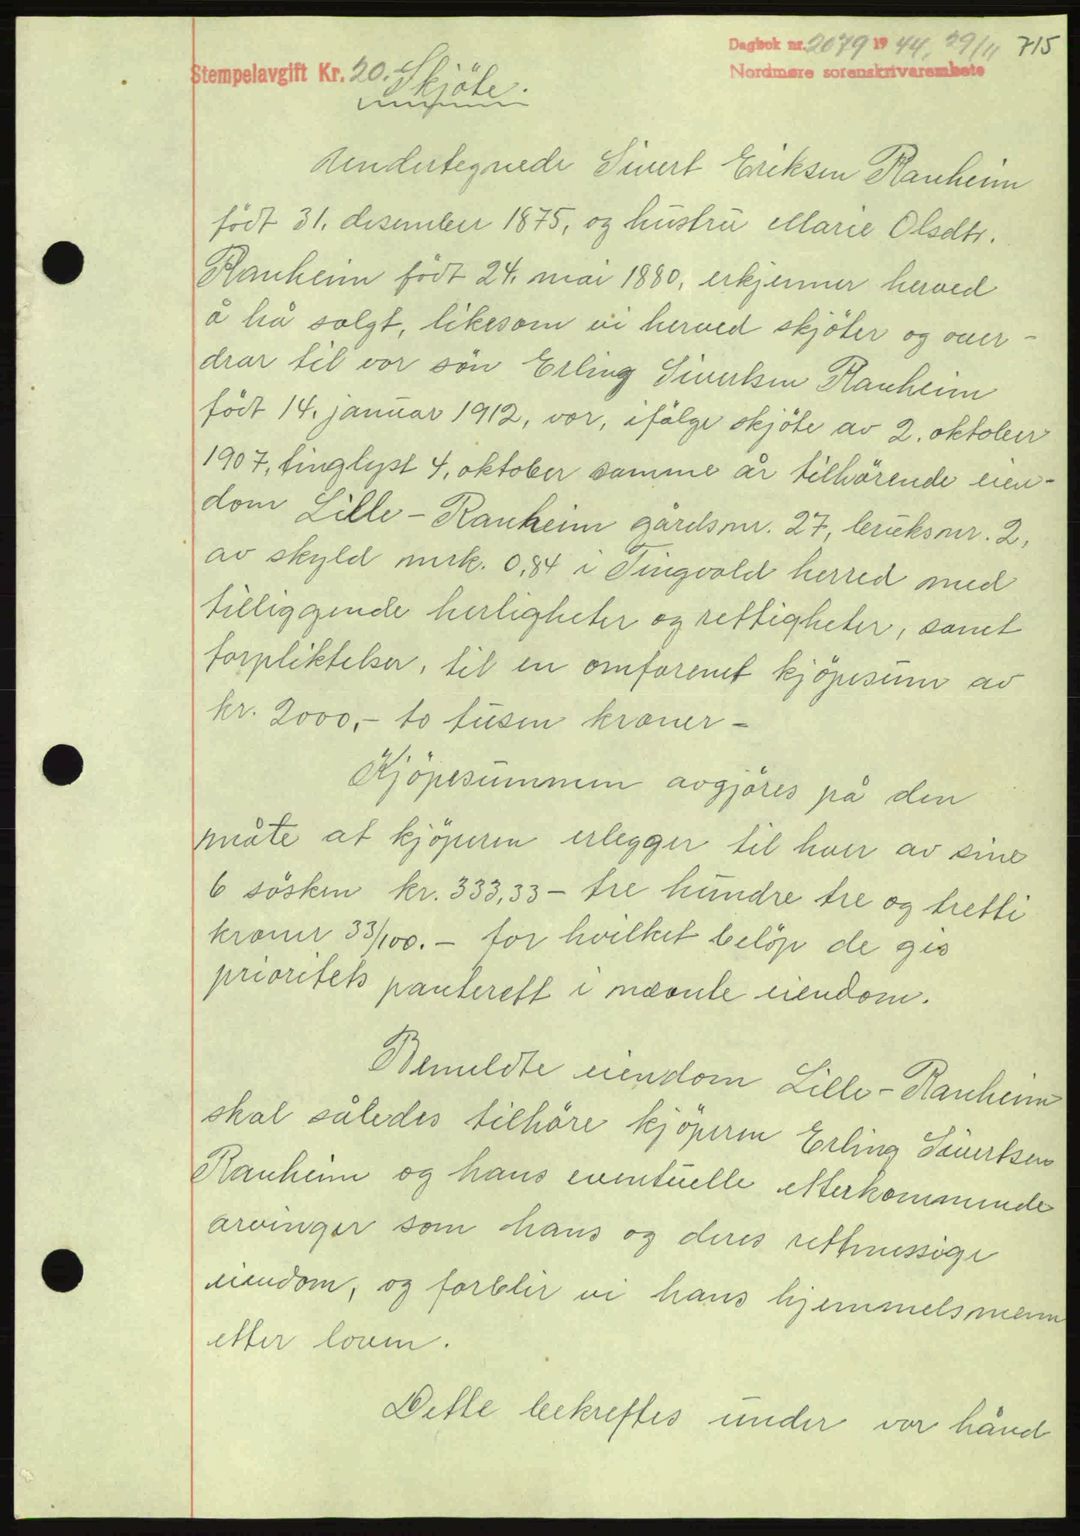 Dagbok nr. 2079 19 44, 29/11 715
Stempelavgift Kr. 20.- Nordmøre sorenskrivarembete
Skjöte.
Undertegnede Sivert Eriksen Ranheim
födt 31. desember 1875, og hustru Marie Olsdtr.
Ranheim födt 24. mai 1880, erkjenner herved
å ha solgt, likesom vi herved skjöter og over-
drar til vor sön Erling Sivertsen Ranheim
födt 14. januar 1912, vor, ifölge skjöte av 2. oktober
1907, tinglyst 4. oktober samme år tilhörende eien-
dom Lille-Ranheim gårdsnr. 27, bruksnr. 2,
av skyld mrk. 0,84 i Tingvold herred med
tilliggende herligheter og rettigheter, samt
forpliktelser, til en omforenet kjöpesum av
kr. 2000,- to tusen kroner -
Kjöpesummen avgjöres på den
måte at kjöperen erlegger til hver av sine
6 sösken kr. 333,33 - tre hundre tre og tretti
kroner 33/100. - for hvilket belöp de gis
prioritets panterett i nævnte eiendom.
Bemeldte eiendom Lille-Ranheim
skal således tilhöre kjöperen Erling Sivertsen
Ranheim og hans eventuelle etterkommende
arvinger som hans og deres rettmessige
eiendom, og forblir vi hans hjemmelsmenn
etter loven.
Dette bekreftes under vor hånd